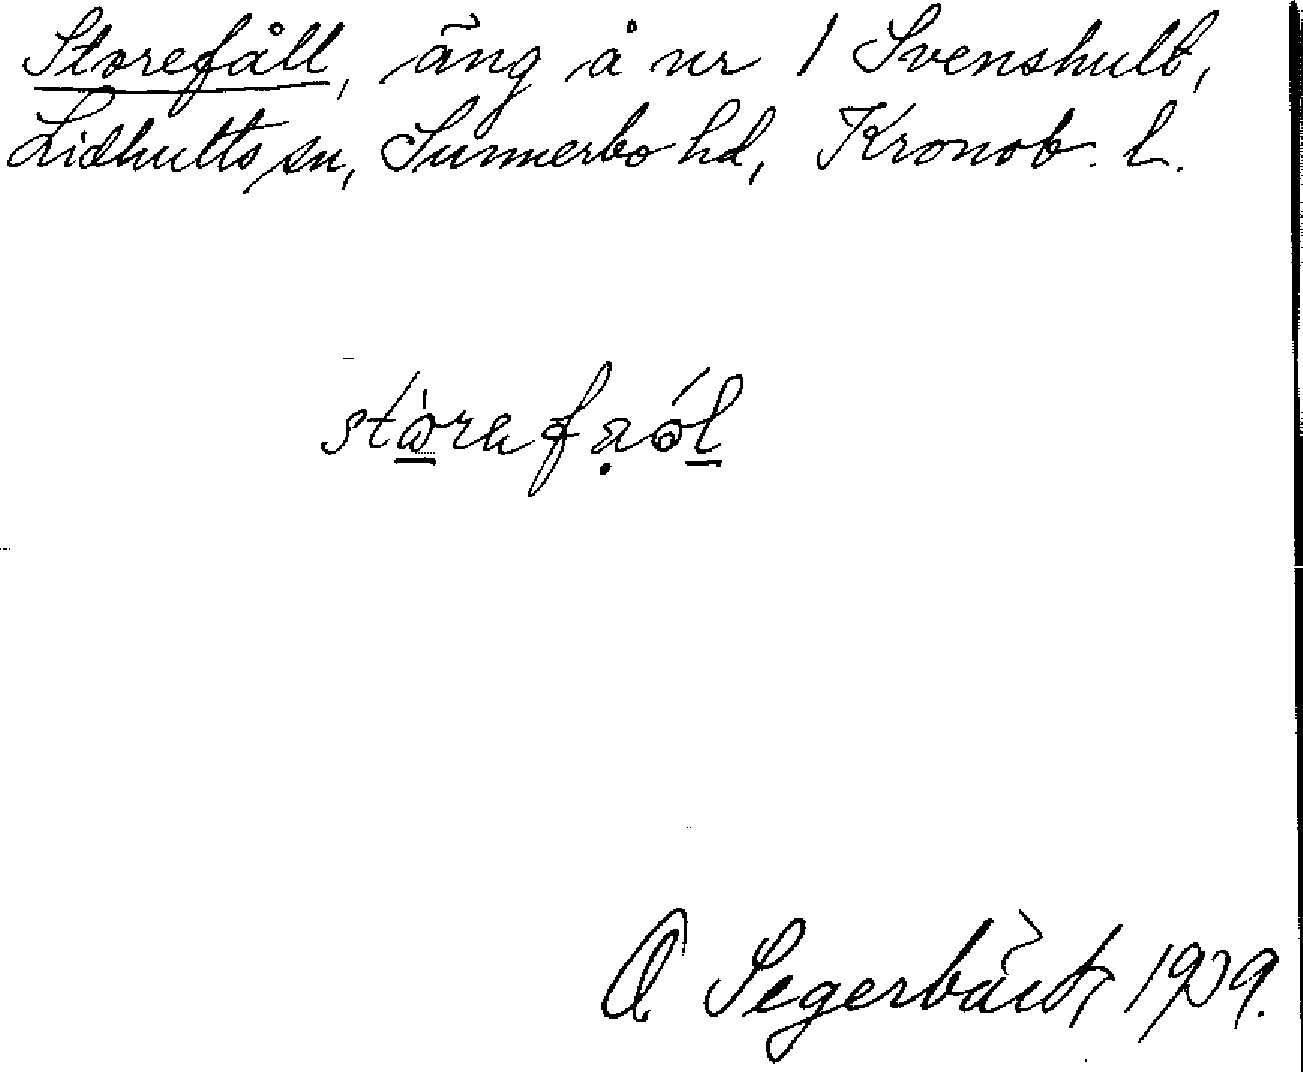 Storefåll, äng å nr 1 Svenshult,
Lidhults sn, Sunnerbo hd, Kronob. l.
Segerbäck 19